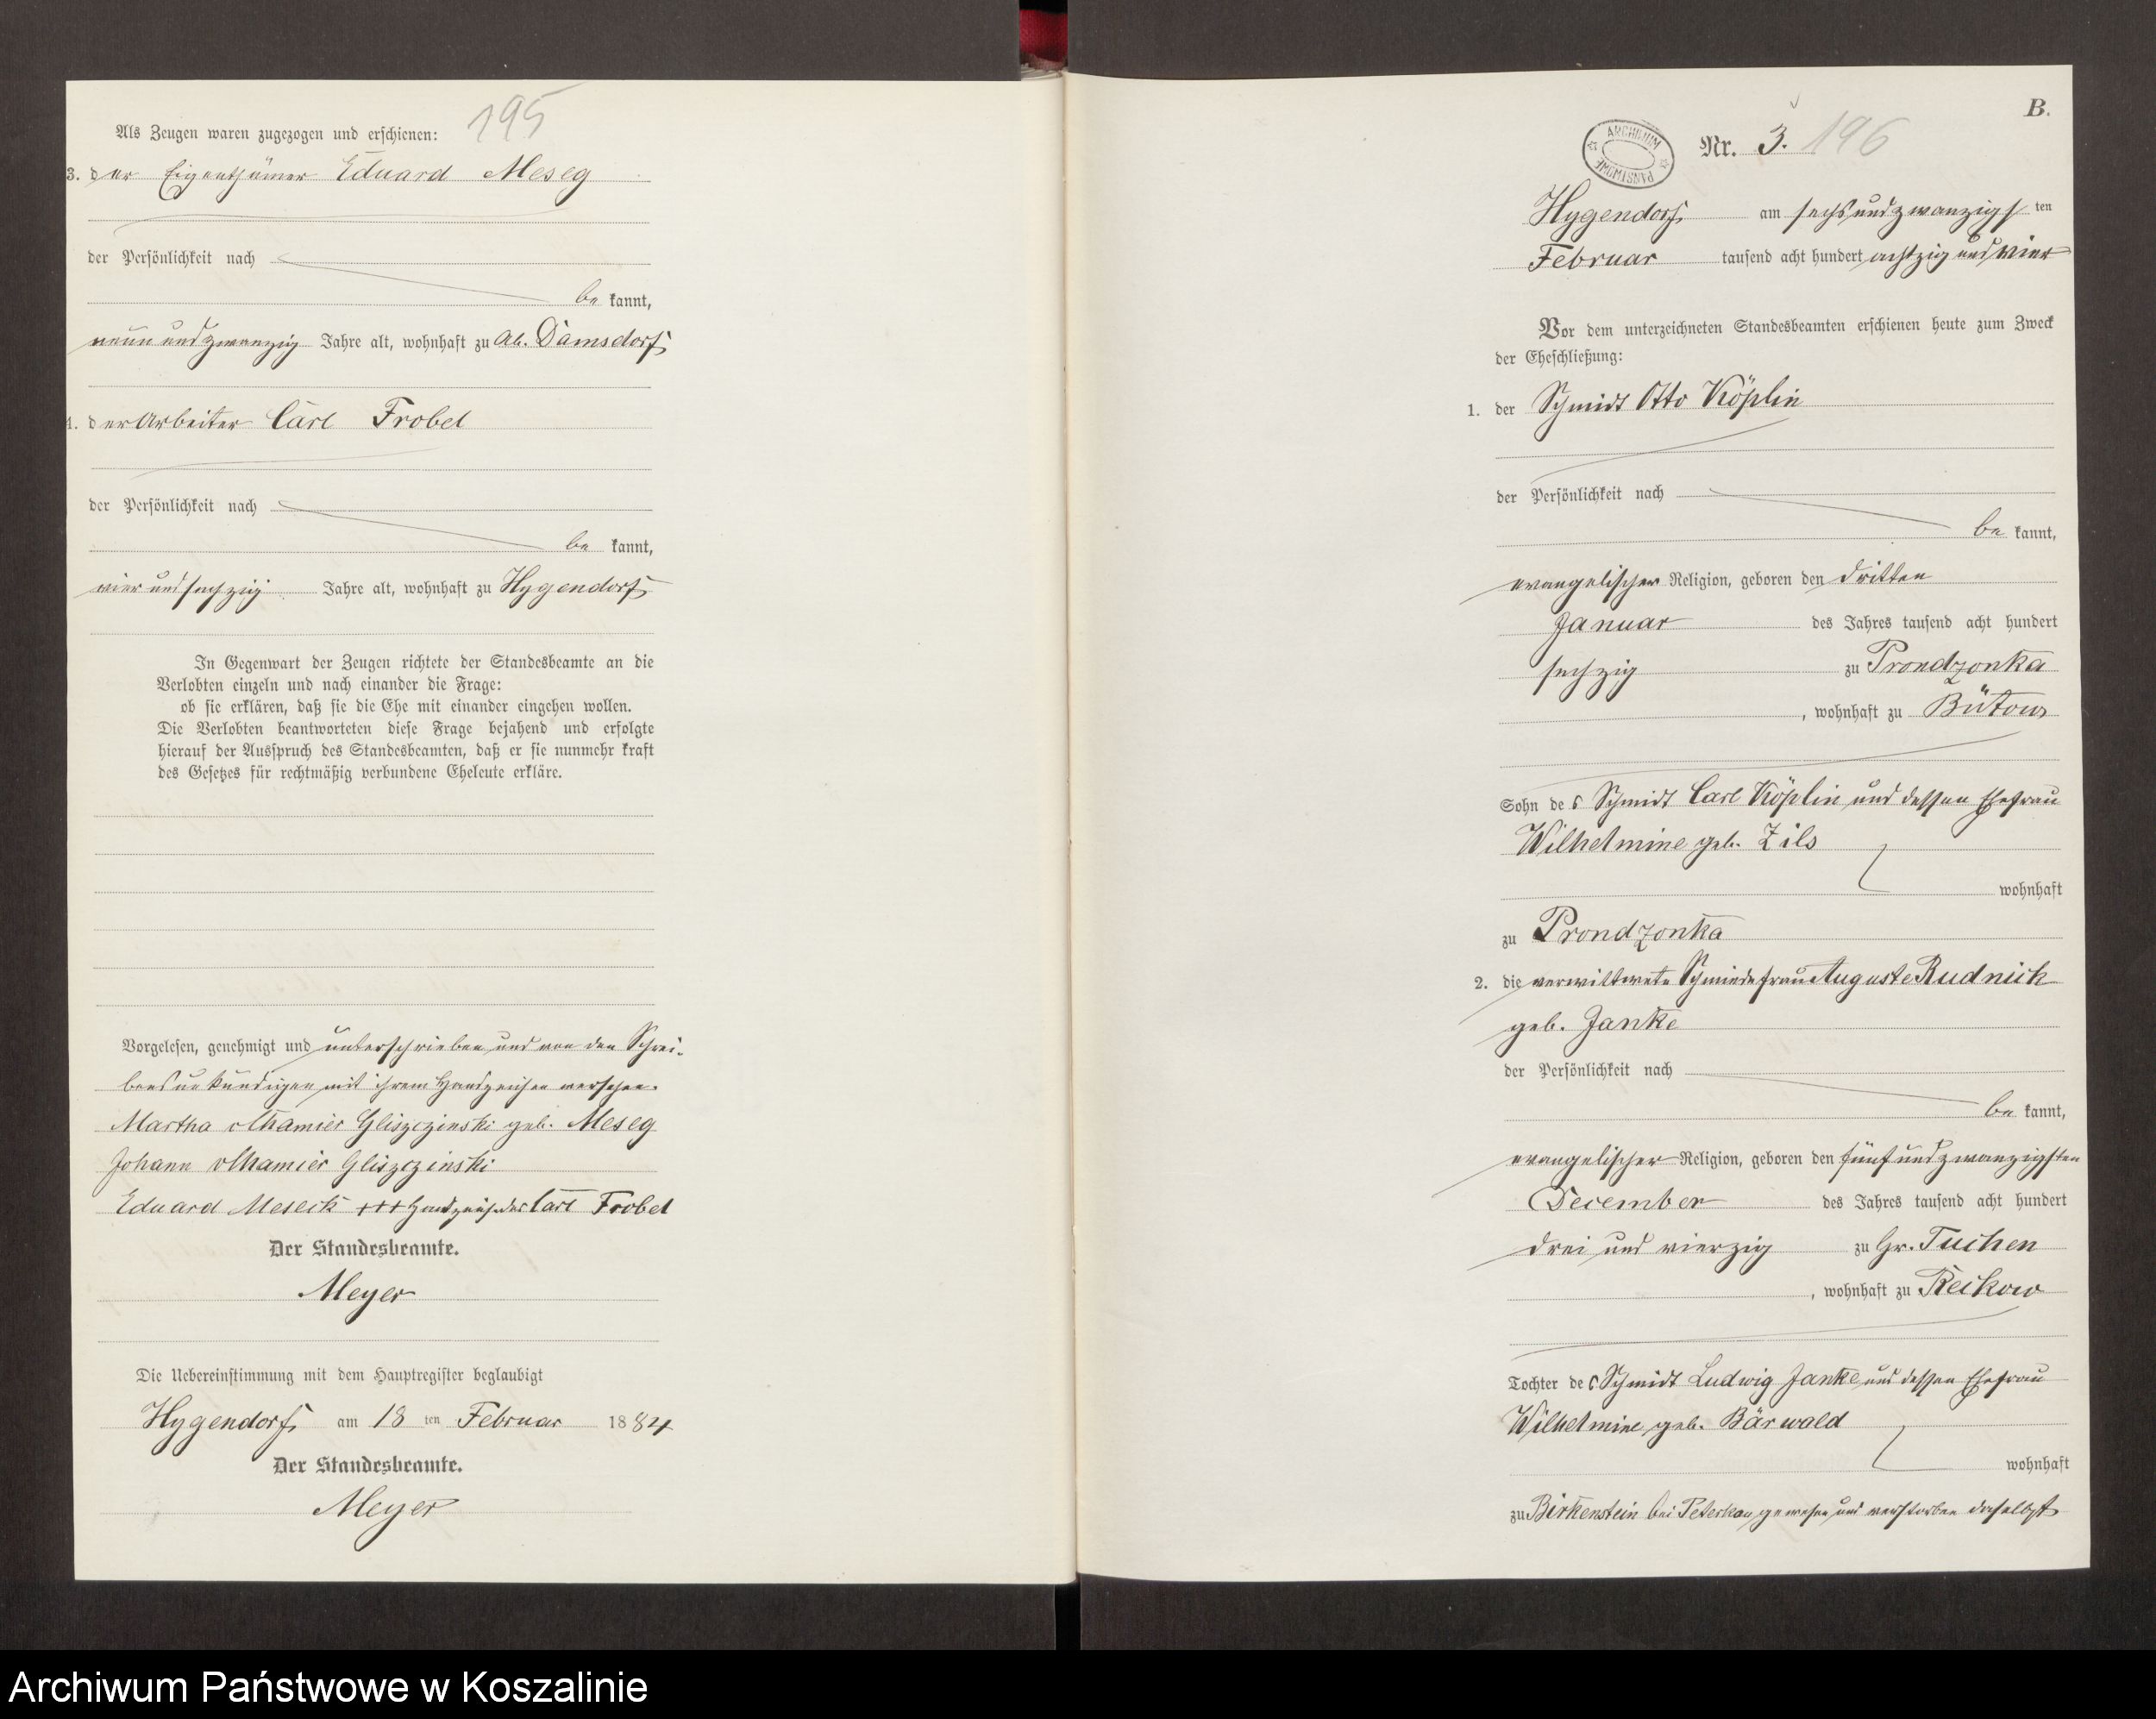 195
Als Zeugen waren zugezogen und erschienen:
3. der Eigenthümer Eduard Meseg
der Persönlichkeit nach
be kannt,
neun und zwanzig Jahre alt, wohnhaft zu Alt. Damsdorf
4. der Arbeiter Carl Frobel
der Persönlichkeit nach
be kannt,
vier und sechzig Jahre alt, wohnhaft zu Hygendorf
In Gegenwart der Zeugen richtete der Standesbeamte an die
Verlobten einzeln und nach einander die Frage:
ob sie erklären, daß sie die Ehe mit einander eingehen wollen.
Die Verlobten beantworteten diese Frage bejahend und erfolgte
hierauf der Ausspruch des Standesbeamten, daß er sie nunmehr kraft
des Gesetzes für rechtmäßig verbundene Eheleute erkläre.
Vorgelesen, genehmigt und unterschrieben und von den Schrei-
bensunkundigen mit ihrem Handzeichen versehen.
Martha vChamier Gliszczinski geb. Meseg
Johann vChamier Gliszczinski
Eduard Meseck +++ Handzeich. des Carl Frobel
Der Standesbeamte.
Meyer
Die Uebereinstimmung mit dem Hauptregister beglaubigt
Hygendorf am 18 ten Februar 1884
Der Standesbeamte.
Meyer
B.
ARCHIWUM PAŃSTWOWE
Nr. 3. 196
Hygendorf am sechsundzwanzigsten
Februar tausend acht hundert achtzig und vier
Vor dem unterzeichneten Standesbeamten erschienen heute zum Zweck
der Eheschließung:
1. der Schmidt Otto Köplin
der Persönlichkeit nach
be kannt,
evangelischer Religion, geboren den dritten
Januar des Jahres tausend acht hundert
sechzig zu Prondzonka
, wohnhaft zu Bütow
Sohn des Schmidt Carl Köplin und dessen Ehefrau
Wilhelmine geb. Zils
wohnhaft
zu Prondzonka
2. die verwittwete Schmiedefrau Auguste Rudnick
geb. Janke
der Persönlichkeit nach
be kannt,
evangelischer Religion, geboren den fünfundzwanzigsten
December des Jahres tausend acht hundert
drei und vierzig zu Gr. Tuchen
, wohnhaft zu Reckow
Tochter des Schmidt Ludwig Janke und dessen Ehefrau
Wilhelmine geb. Bärwald
wohnhaft
zu Birkenstein bei Peterkau gewesen und verstorben daselbst
Archiwum Państwowe w Koszalinie